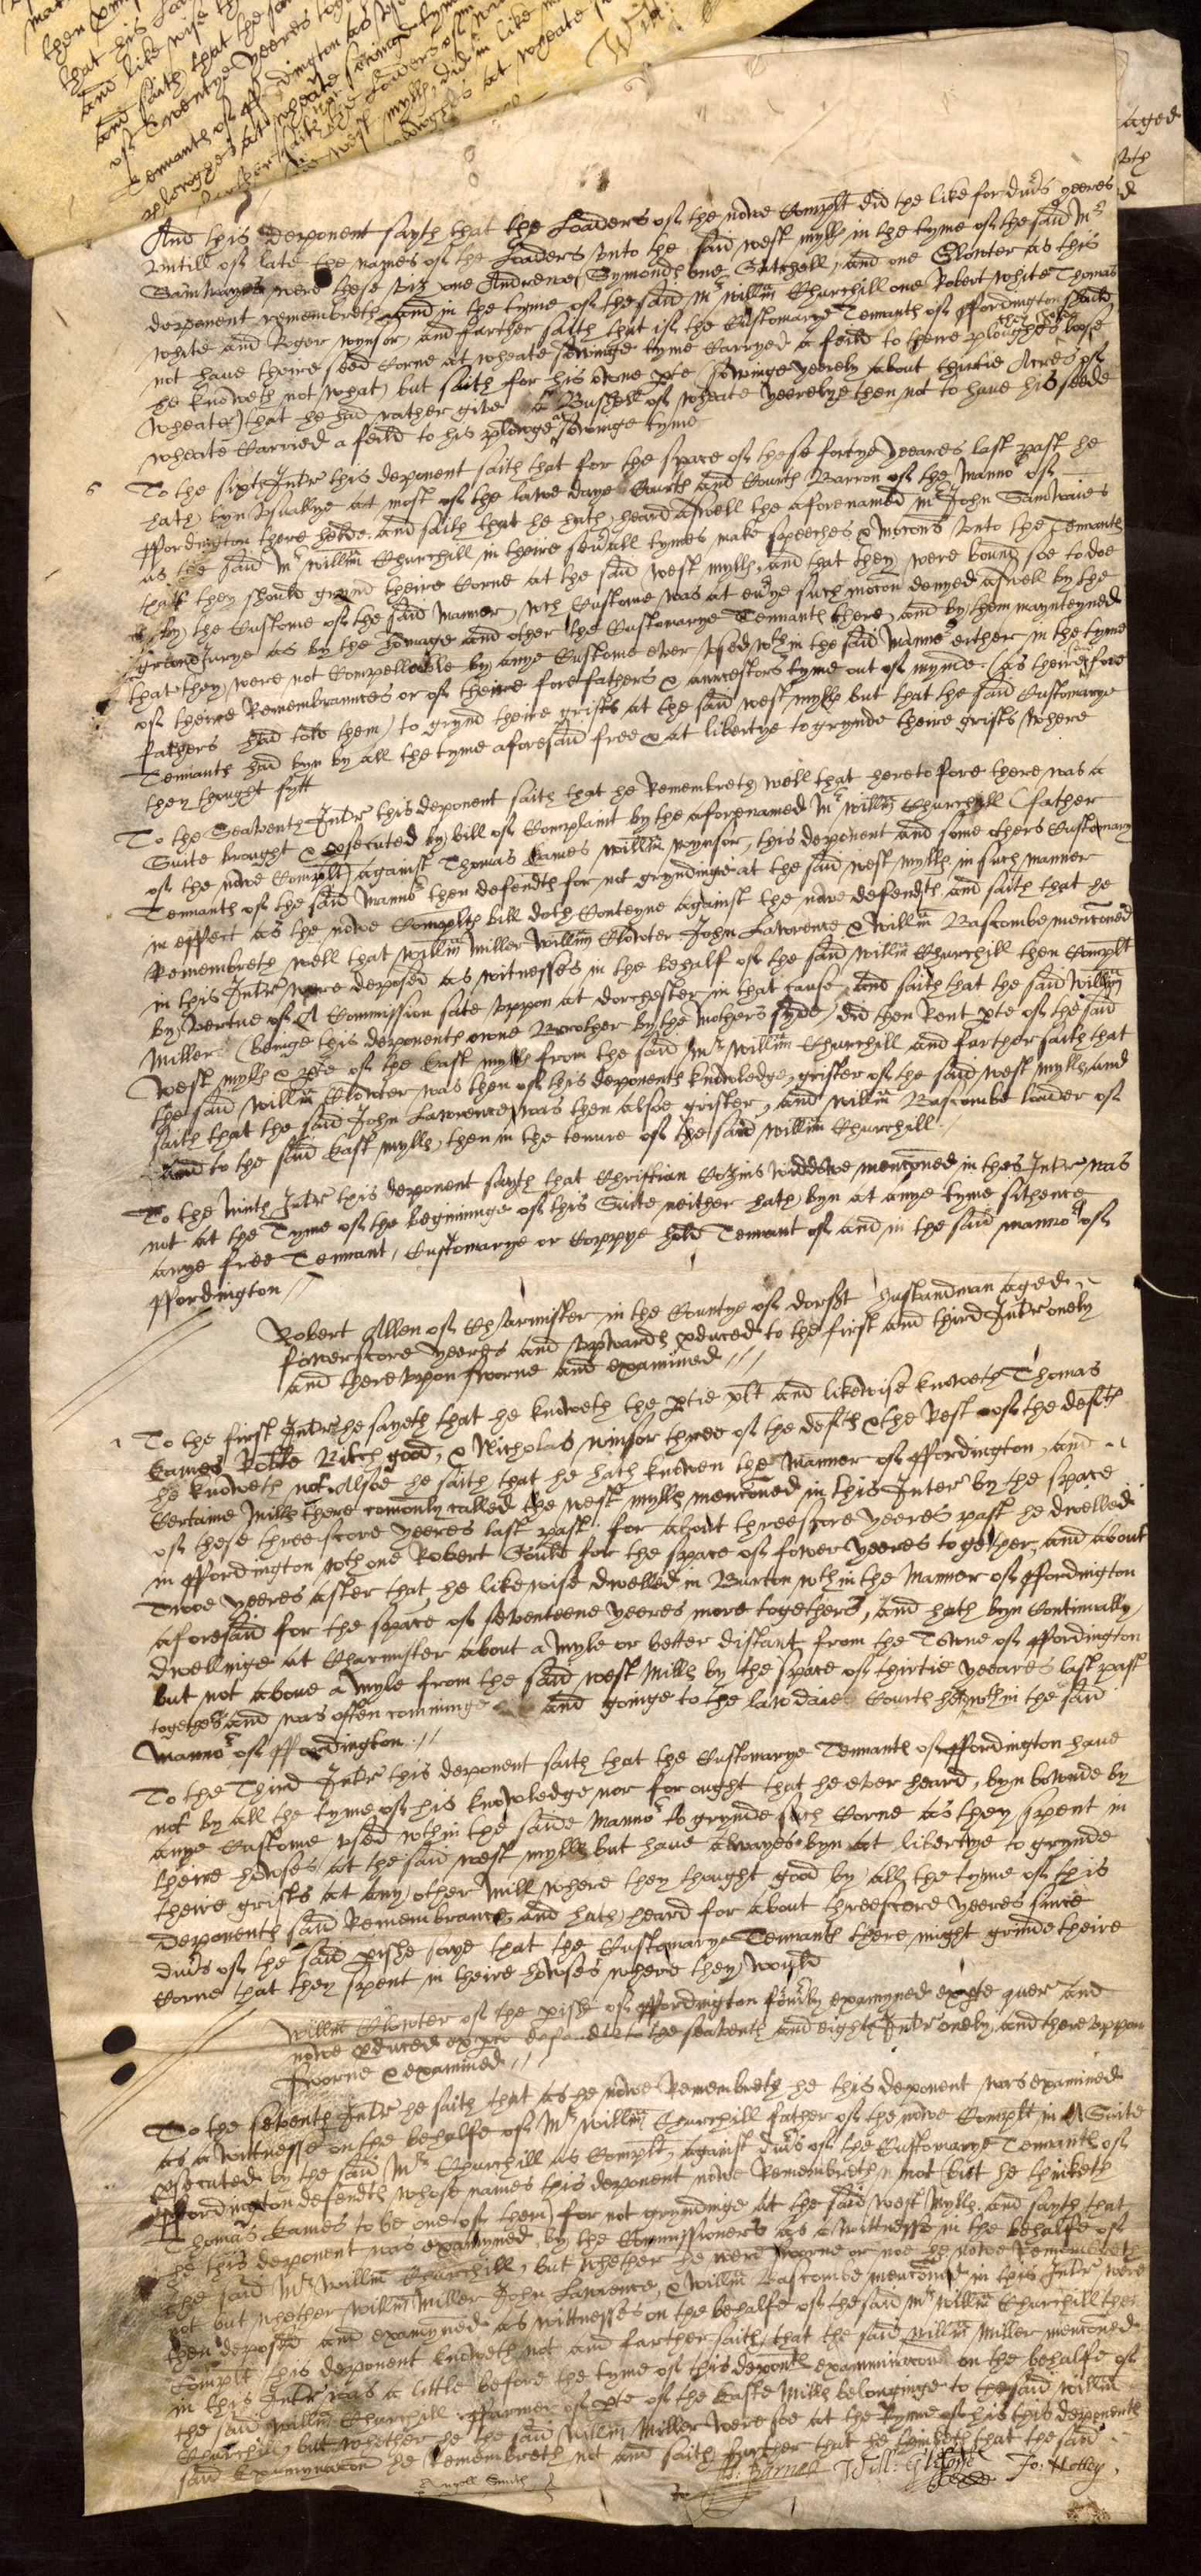 then
that his
and like wise th
and saith that the sa
of Twentye yeeres tog
Tennants of ffordington as
ploughes at wheate sowinge tyme
farther saith the Loaders of
west mylls, did in like
ploughes at wheate
aged
And this deponent sayth that the Loaders of the nowe Complt did the like for divrs yeeres
untill of late the names of the Loaders unto the said west mylls in the tyme of the said Mr
Samwayes were these viz one Andrewe Symonds one Satchell, and one Clowter as this
deponent remembreth, and in the tyme of the said Mr Willm Churchill one Robert White Thomas
White and Roger Wynsor, and farther saith that if the Customarye Tennants of ffordington should
not have theire seed Corne at wheate sowinge tyme Carryed a feild to theire ploughes they would loose
he knoweth not what, but saith for his owne pte sowinge yeerely about thirtie Acres of
wheate) that he had rather give a Bushell of wheate yeerelye then not to have his seede
wheate Carried a feild to his plowge at sowinge tyme
6 To the sixth Intr this deponent saith that for the space of these fortye yeeares last past he
hath byn usuallye at most of the lawe daye Courts and Courts Barron of the Mannor of
ffordington there helde. and saith that he hath heard aswell the aforenamed mr John Samwaies
as the said Mr Willm Churchill in theire sevrall tymes make speeches & mocons unto the Tennants
that they should grynd theire Corne at the said west mylls, and that they were bound soe to doe
by the Custome of the said Mannor, wch Custome was at everye such mocon denyed aswell by the
grand Jurye as by the homage and other the Customarye Tennants there, and by them maynteyned
that they were not Compelleable by anye Custome ever used wthin the said Mannor either in the tyme
of theire Remembraunces or of theire forefathers & auncestors tyme out of mynde. (as theire fore
fathers had told them) to grynd theire grists at the said west mylls but that the said Customarye
Tennants had byn by all the tyme aforesaid free & at libertye to grynde theire grists where
they thought fytt
To the Seaventh Intr this deponent saith that he Remembreth well that heretofore there was a
Suite brought & psecuted by bill of Complaint by the aforenamed Mr Willm Churchill (father
of the nowe Complt) against Thomas Eames Willm Wynsor, this deponent and some others Customary
Tennants of the said Mannor then defendts for not gryndinge at the said west mylls in such manner
in effect as the nowe Complts bill doth Conteyne against the nowe defendts and saith that he
Remembreth well that Willm Miller Willm Clowter John Lawrence & Willm Bascombe menconed
in this Intr were deposed as witnesses in the behalf of the said Willm Churchill then Complt
by vertue of A Commission sate uppon at Dorchester in that cause, and saith that the said Willm
Miller (beinge this deponents owne Brother by the mothers syde) did then Rent pte of the said
West mylls & pte of the East mylls from the said Mr Willm Churchill and farther saith that
the said Willm Clowter was then of this deponents knowledge, grister of the said west mylls, and
saith that the said John Lawrence was then alsoe grister, and Willm Bascombe loader of
and to the said East mylls, then in the tenure of the said Willm Churchill.
To the Ninth Intr this deponent sayth that Christian Cozins widdowe menconed in this Intr was
not at the Tyme of the beginninge of this Suite neither hath byn at anye tyme sithence
anye free Tennant, Customarye or Coppye hold Tennant of and in the said mannor of
ffordington //
Robert Allen of Charmister in the Countye of Dorset husbandman aged
fowerscore yeeres and upwards pduced to the first and third Intr onely
and thereuppon sworne and examined //
1 To the first Intr he sayeth that he knoweth the ptie plt and likewise knoweth Thomas
Eames Robte Bitchgood, & Nicholas Winsor three of the defts & the Rest of the defts
he knoweth not. Alsoe he saith that he hath knowen the Mannor of ffordington, and
Certaine Mills there comonly called the west mylls menconed in this Inter by the space
of these threescore yeeres last past. for about threescore yeeres past he dwelled
in ffordington wth one Robert for the space of fower yeeres together, and about
Twoe yeeres after that, he likewise dwelled in Burton wthin the Mannor of ffordington
aforesaid for the space of seventeene yeeres more together, and hath byn Continually
dwellinge at Charmister about a myle or better distant from the Towne of ffordington
but not above a myle from the said west Mills by the space of thirtie yeeares last past
together and was often comminge and goinge to the law daies Courts held wthin the said
Mannor of ffordington. //
To the Third Intr this deponent saith that the Customarye Tennants of ffordington have
not by all the tyme of his knowledge nor for ought that he ever heard, byn bownde by
anye Custome used wthin the saide Mannor to grynde such Corne as they spent in
theire howses at the said west mylls but have alwayes byn at libertye to grynde
theire grists at any other Mill where they thought good by all the tyme of this
deponents said Remembrance, and hath heard for about threescore yeeres since
divrs of the said pishe saye that the Customarye Tennants there might grinde theire
Corne that they spent in theire howses where they would
Willm Clowter of the pish of ffordington formrly examyned expte quer and
nowe pduced ex pte defend to the seaventh and eighth Intr onely, and thereuppon
sworne & examined //
To the seventh Intr he saith that as he nowe Remembreth he this deponent was examined
as a wittnesse on the behalfe of Mr Willm Churchill father of the nowe Complt in A Suite
psecuted by the said Mr Churchill as Complt, against divrs of the Customarye Tennants of
ffordington defendts whose names this deponent nowe Remembreth not (but he thinketh
Thomas Eames to be one of them) for not gryndinge at the said west Mylls. and sayth that
he this deponent was examyned by the Commissioners as a wittnesse in the behalfe of
the said Mr Willm Churchill, but whether he were sworne or noe he nowe Remembreth
not but whether Willm Miller John Lawrence, & Willm Bascombe menconed in this Intr were
then deposed and examyned as wittnesses on the behalfe of the said Mr Willm Churchill then
Complt this deponent knoweth not and farther saith, that the said Willm Miller menconed
in this Intr was a little before the tyme of this deponts examminacon on the behalfe of
the said Willm Churchill ffarmer of pte of the Easte Mills belonginge to the said Willm
Churchill, but whether he the said Willm Miller were soe at the tyme of his this deponents
said Examynacon he Remembreth not and saith further that he thinketh that the said
Angell Smith
Barnes Will: Jo: Notley